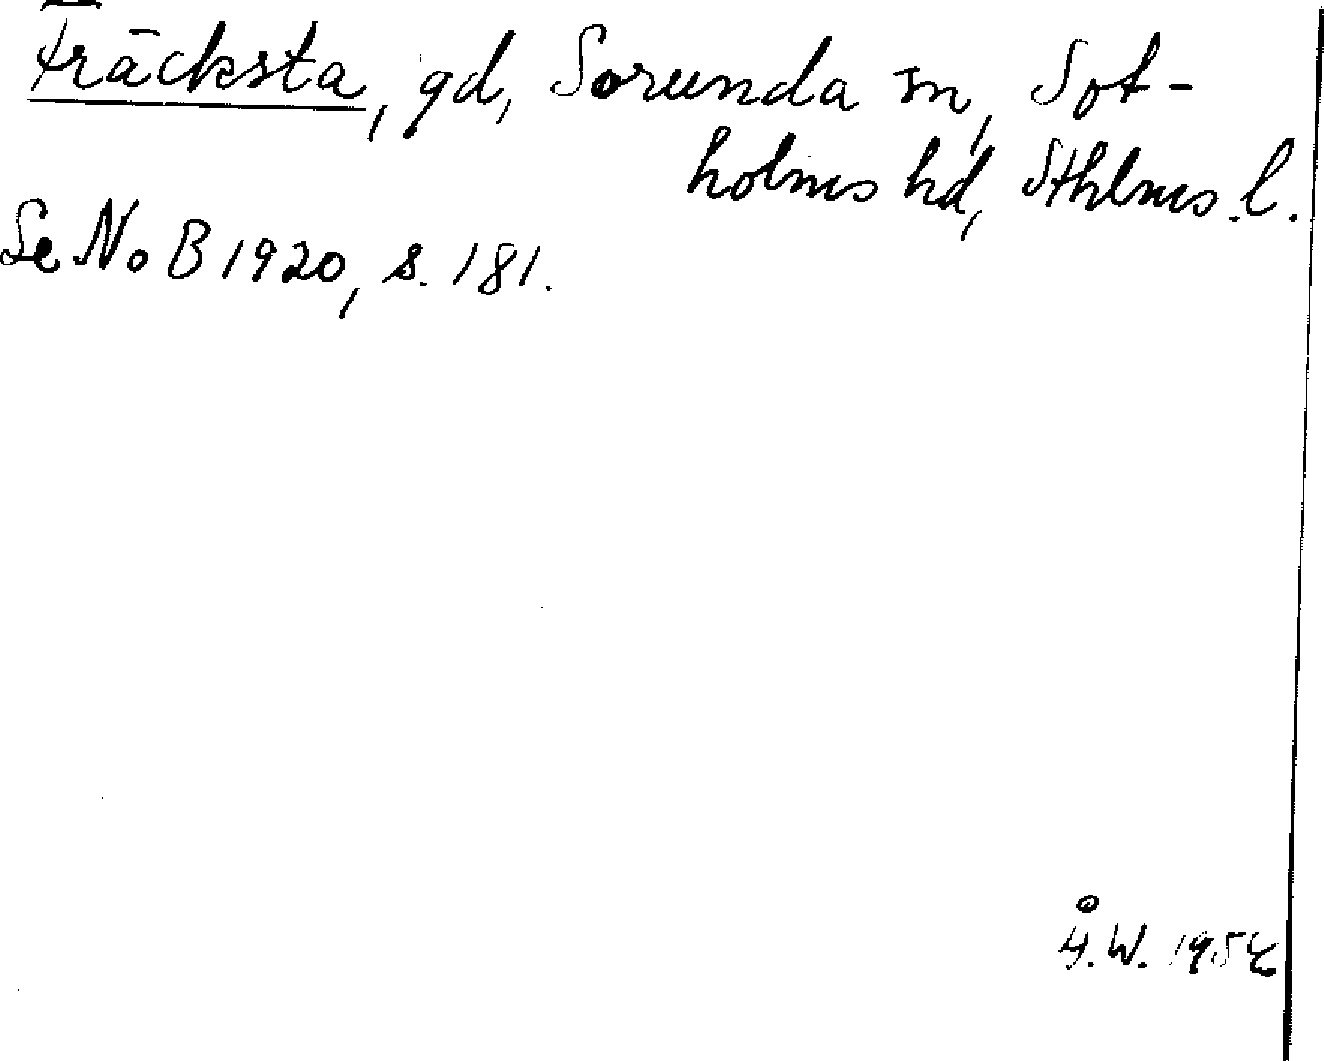 Fräcksta, gd, Sorunda sn, Sot-
holms hd, Sthlms. l.
Se No B 1920, s. 181.
Å.W. 1954